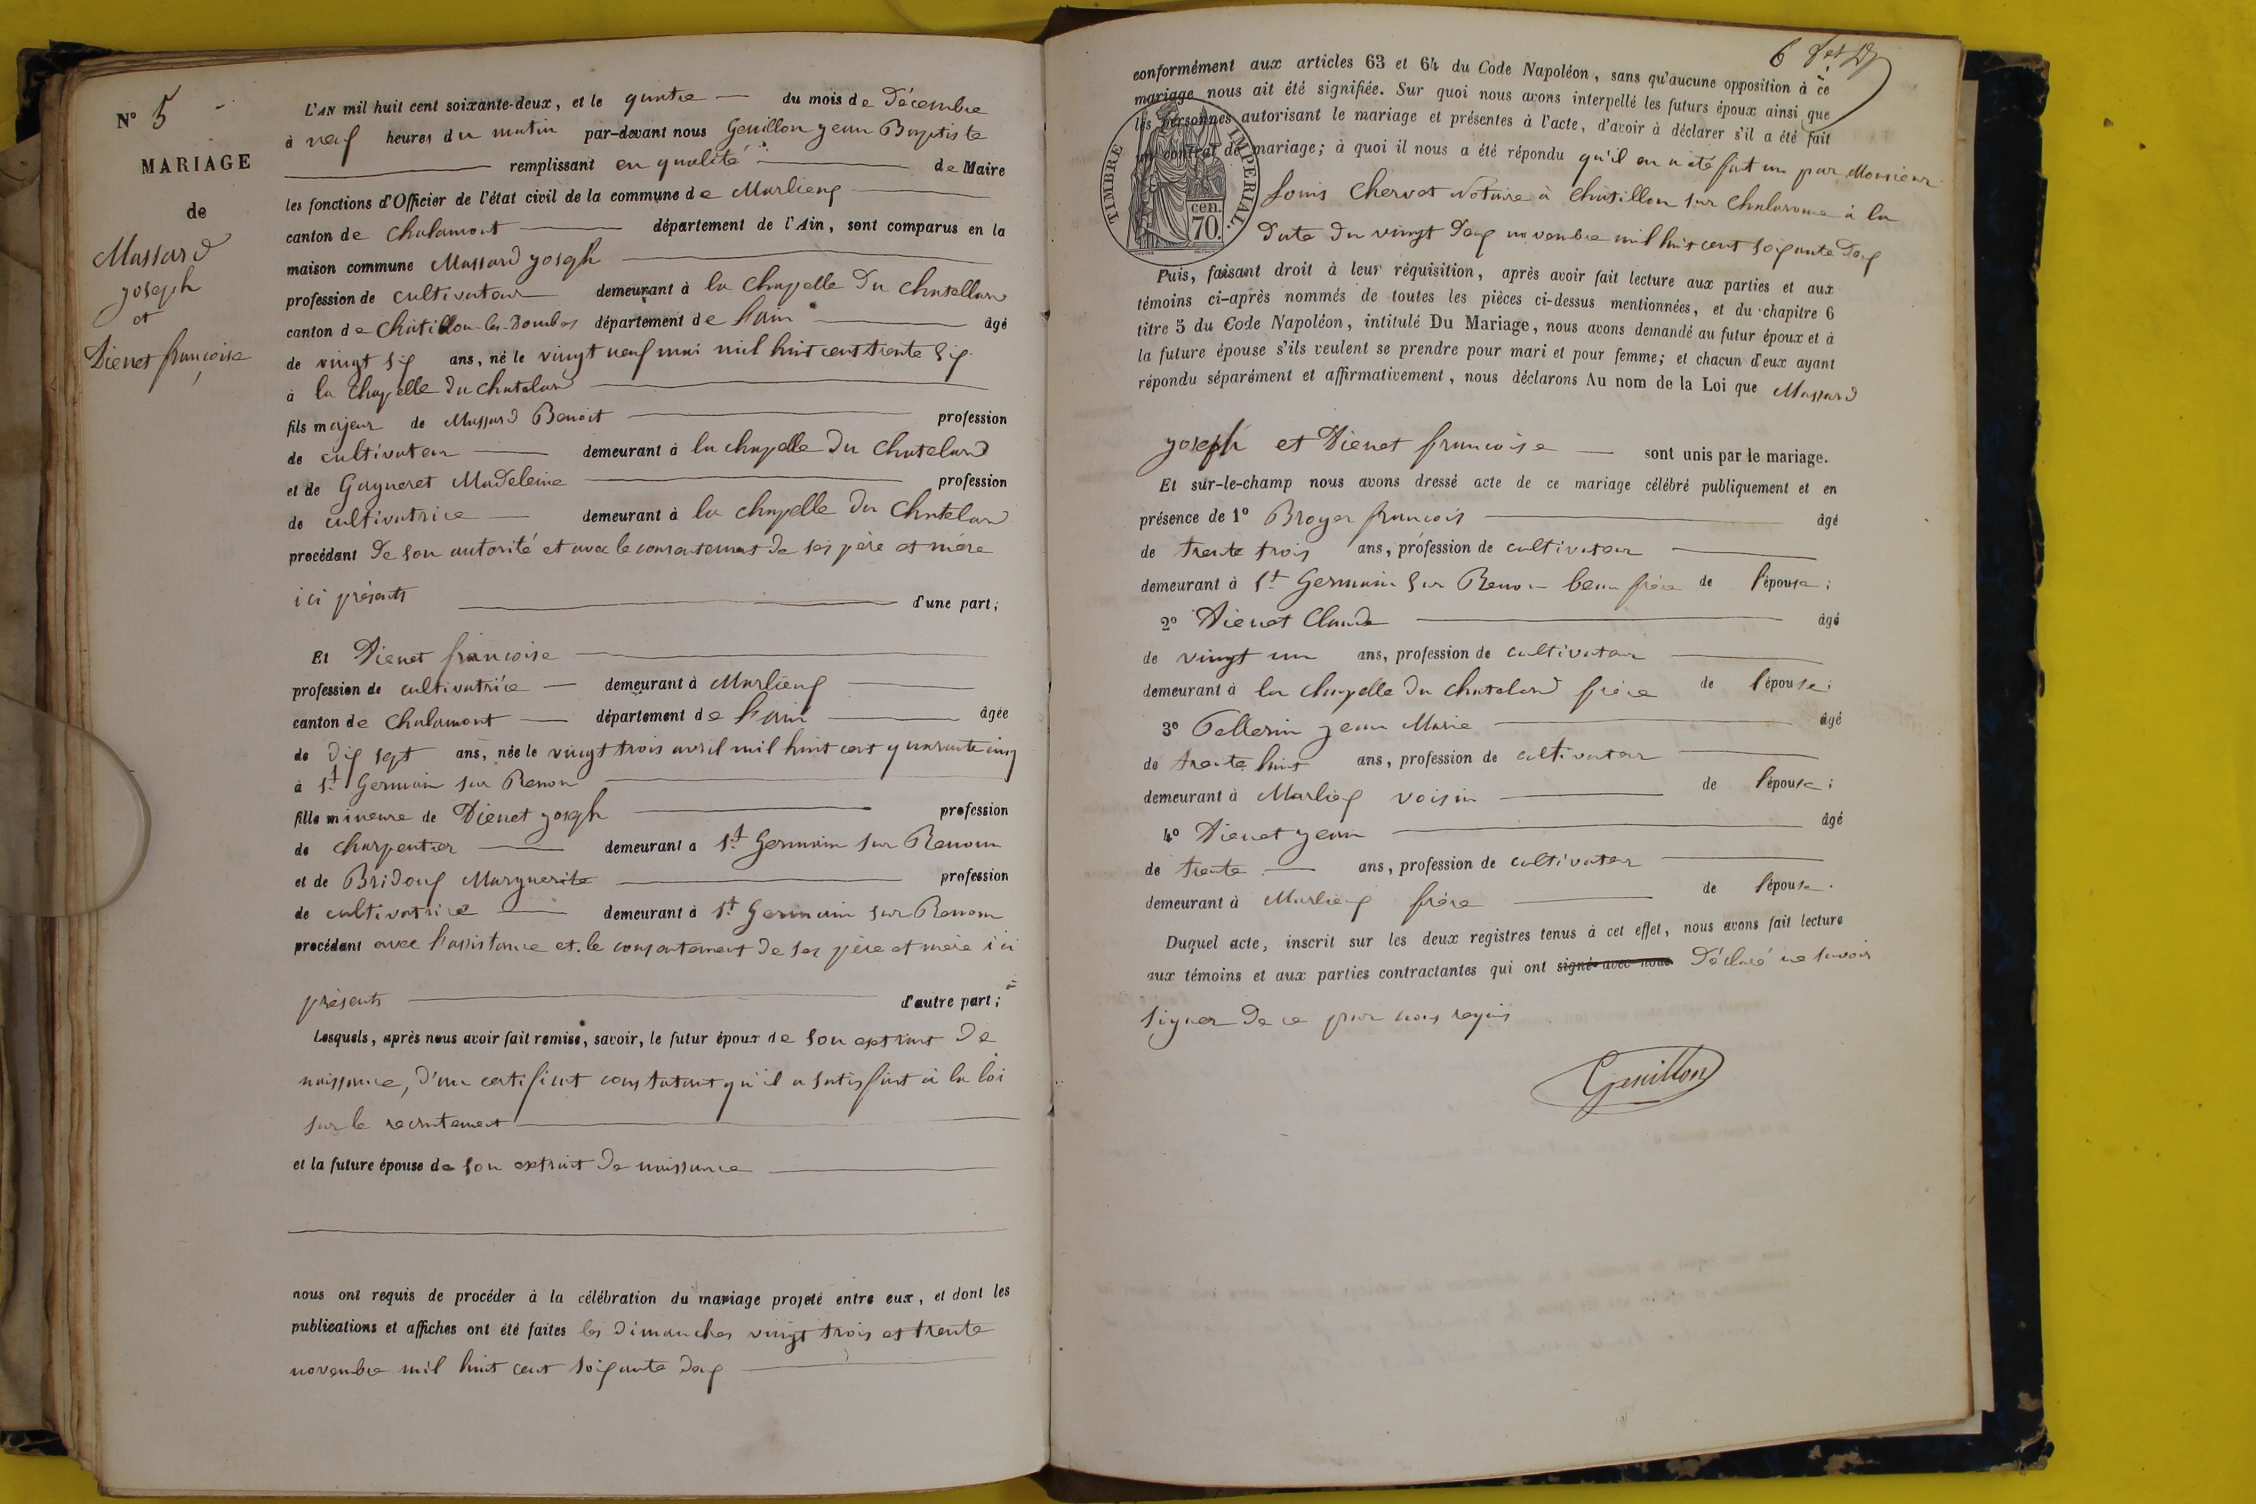 N° 5
MARIAGE
de
Massard
joseph
et
Dienet françoise
L'AN mil huit cent soixante-deux, et le quatre du mois de Décembre
à neuf heures du matin par-devant nous Genillon jean Baptiste
remplissant en qualité de Maire
les fonctions d'Officier de l'état civil de la commune de Marlieux
canton de Chalamont département de l'Ain, sont comparus en la
maison commune Massard joseph
profession de cultivateur demeurant à la Chapelle Du Chatellard
canton de Chatillon-les-Dombes département de l'ain âgé
de vingt six ans, né le vingt neuf mai mil huit cent trente six
à la Chapelle du chatelard
fils majeur de Massard Benoit profession
de cultivateur demeurant à la chapelle Du Chatelard
et de Gayneret Madeleine profession
de cultivatrice demeurant à la chapelle Du Chatelard
procédant De son autorité et avec le consentement de ses père et mère
ici présents d'une part;
Et Dienet françoise
profession de cultivatrice demeurant à Marlieux
canton de Chalamont département de l'ain âgée
de dix sept ans, née le vingt trois avril mil huit cent quarante cinq
à St Germain sur Renon
fille mineure de Dienet joseph profession
de charpentier demeurant à St Germain sur Renom
et de Bridoux Marguerite profession
de cultivatrice demeurant à St Germain sur Renom
procédant avec l'assistance et le consentement de ses père et mère ici
présents d'autre part;
Lesquels, après nous avoir fait remise, savoir, le futur époux de son extrait de
naissance, d'un certificat constatant qu'il a satisfait à la loi
sur le recrutement
et la future épouse de son extrait de naissance
nous ont requis de procéder à la célébration du mariage projeté entre eux, et dont les
publications et affiches ont été faites les dimanches vingt trois et trente
novembre mil huit cent soixante deux
6
conformément aux articles 63 et 64 du Code Napoléon, sans qu'aucune opposition à ce
mariage nous ait été signifiée. Sur quoi nous avons interpellé les futurs époux ainsi que
les personnes autorisant le mariage et présentes à l'acte, d'avoir à déclarer s'il a été fait
un contrat de mariage; à quoi il nous a été répondu qu'il en a été fait un par Monsieur
Louis Chervet Notaire à Chatillon sur Chalaronne à la
Date du vingt deux novembre mil huit cent soixante deux
TIMBRE IMPERIAL.
70 cen.
Puis, faisant droit à leur réquisition, après avoir fait lecture aux parties et aux
témoins ci-après nommés de toutes les pièces ci-dessus mentionnées, et du chapitre 6
titre 5 du Code Napoléon, intitulé Du Mariage, nous avons demandé au futur époux et à
la future épouse s'ils veulent se prendre pour mari et pour femme; et chacun d'eux ayant
répondu séparément et affirmativement, nous déclarons Au nom de la Loi que Massard
joseph et Dienet françoise sont unis par le mariage.
Et sur-le-champ nous avons dressé acte de ce mariage célébré publiquement et en
présence de 1° Broyer françois âgé
de trente trois ans, profession de cultivateur
demeurant à St Germain sur Renon beau frère de l'épouse;
2° Dienet Claude âgé
de vingt un ans, profession de cultivateur
demeurant à la chapelle du chatelard frère de l'épouse;
3° Pellerin jean Marie âgé
de trente huit ans, profession de cultivateur
demeurant à Marlieux voisin de l'épouse;
4° Dienet jean âgé
de trente ans, profession de cultivateur
demeurant à Marlieux frère de l'épouse.
Duquel acte, inscrit sur les deux registres tenus à cet effet, nous avons fait lecture
aux témoins et aux parties contractantes qui ont signé avec nous Déclaré ne savoir
signer de ce par nous requis
Genillon